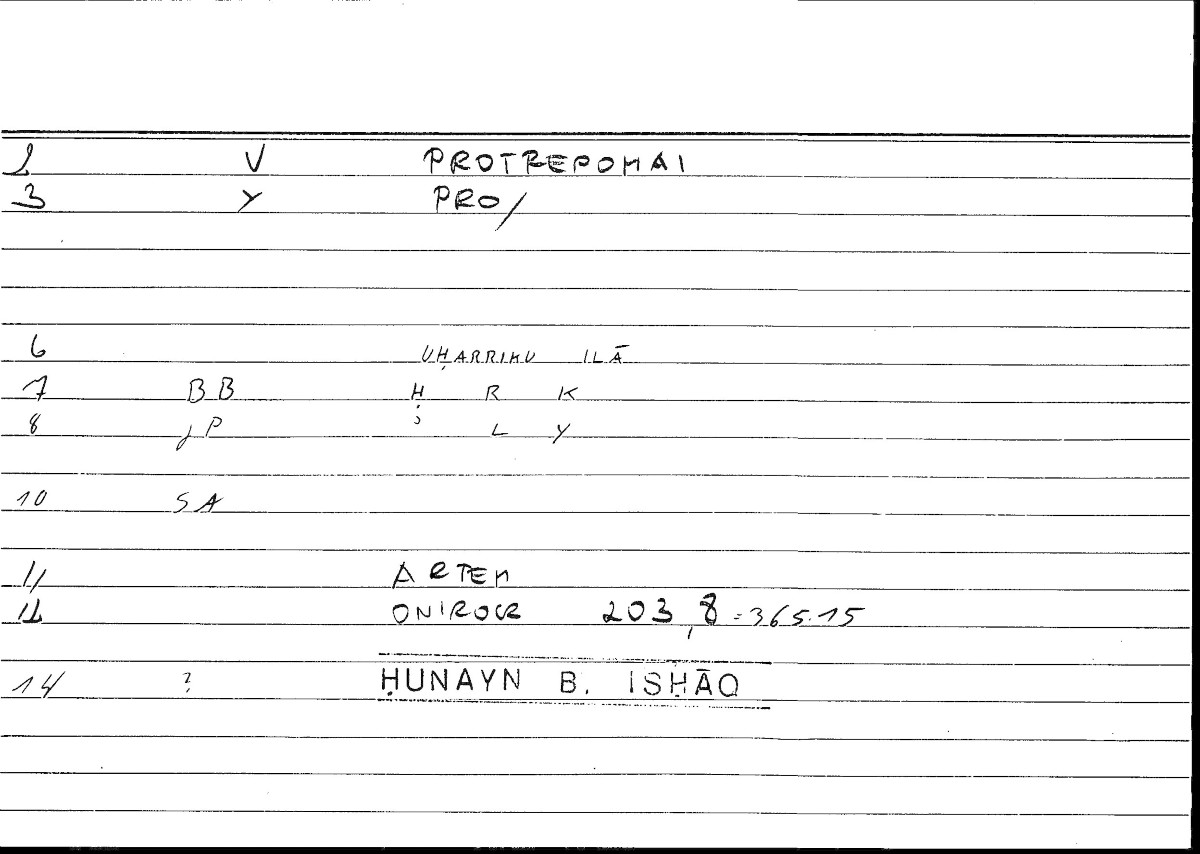 2 V PROTREPOMAI
3 Y PRO/
6 UḤARRIKU ILĀ
7 BB Ḥ R K
8 JP ʾ L Y
10 SA
11 ARTEM
12 ONIROCR 203,8 = 365.15
14 ? ḤUNAYN B. ISḤĀQ